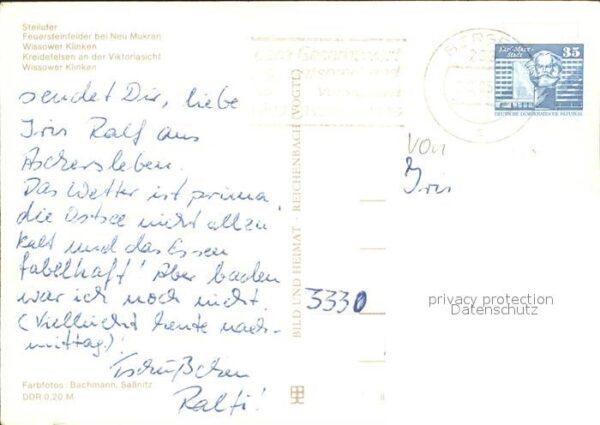 Steilufer
Feuersteinfelder bei Neu Mukran
Wissower Klinken
Kreidefelsen an der Viktoriasicht
Wissower Klinken
sendet Dir, liebe
Iris Ralf aus
Aschersleben.
Das Wetter ist prima,
die Ostsee nicht allzu
kalt und das Essen
fabelhaft! Aber baden
war ich noch nicht.
(Vielleicht heute nach-
mittag.)!
Tschüßchen
Ralfi!
Farbfotos: Bachmann, Saßnitz
DDR 0,20 M
BILD UND HEIMAT · REICHENBACH (VOGTL)
zum Gesamtwert
Karl-Marx-
Stadt
35
DEUTSCHE DEMOKRATISCHE REPUBLIK
von
Iris
3330
privacy protection
Datenschutz